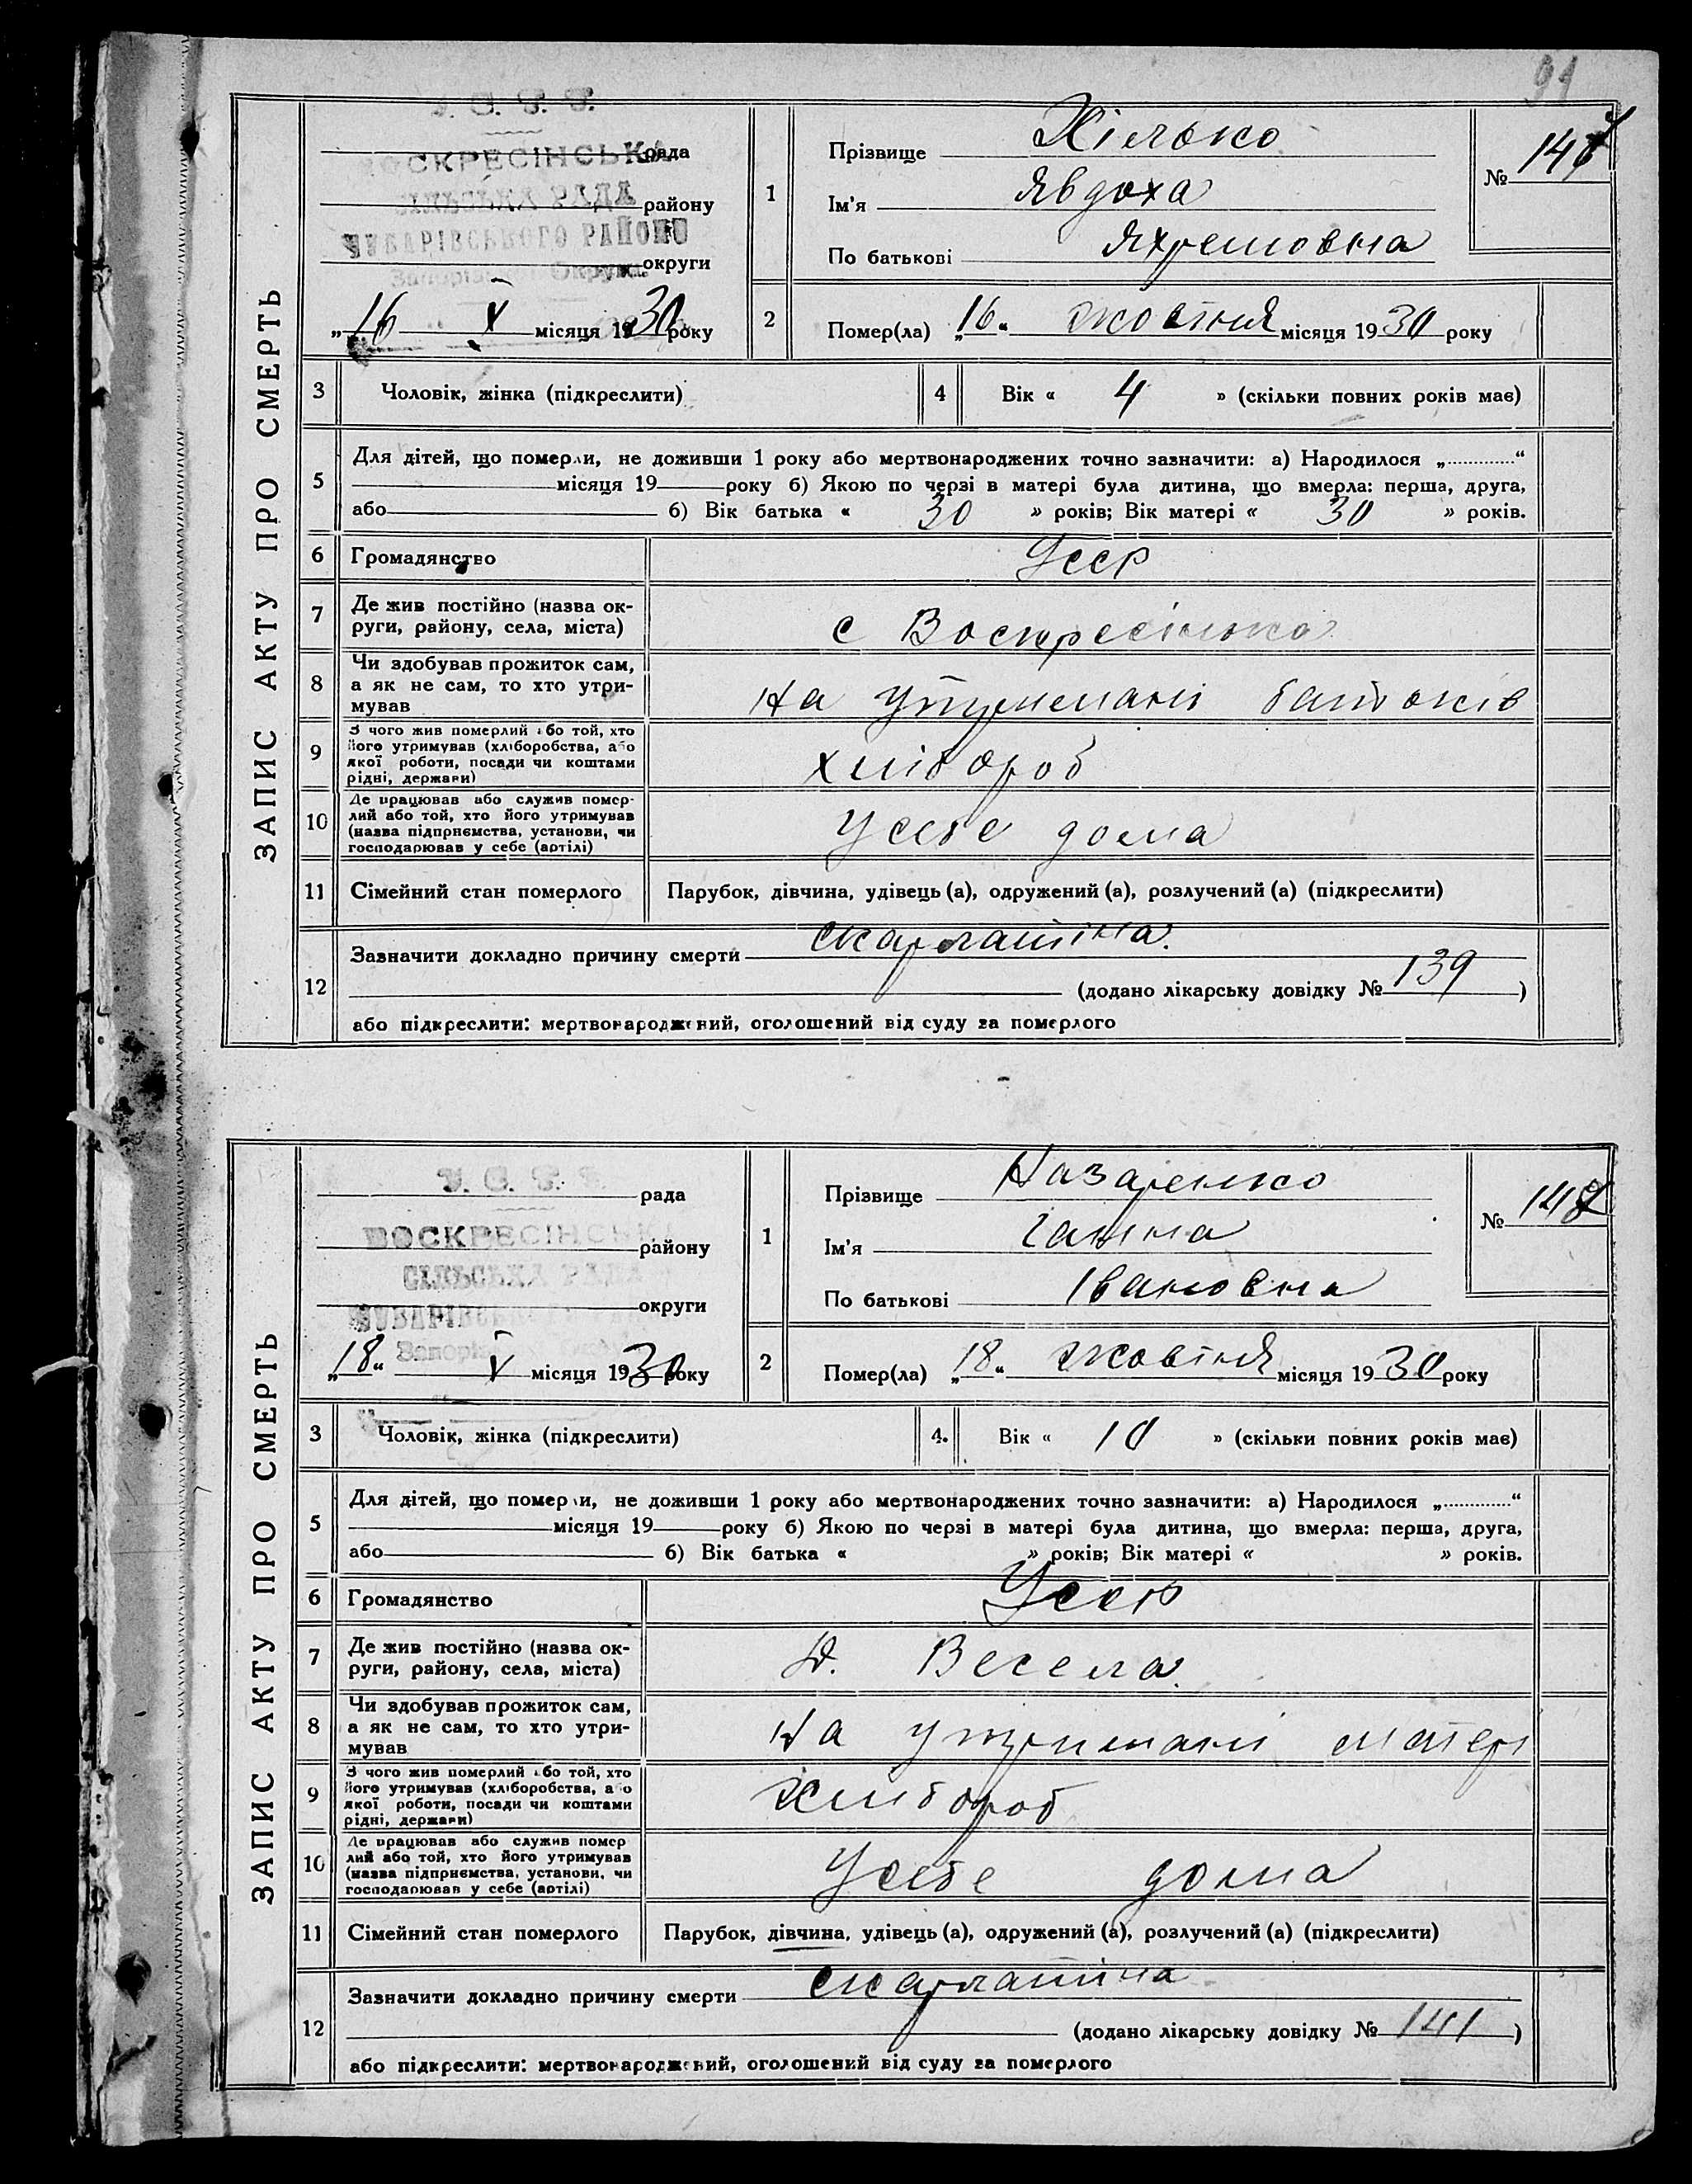 91
ЗАПИС АКТУ ПРО СМЕРТЬ
У. С. Р. Р.
ВОСКРЕСІНСЬКА рада
СІЛЬСЬКА РАДА району
ЧУБАРІВСЬКОГО РАЙОНУ
Запорізької Округи округи
„16 X місяця 1930 року
1
Прізвище Хілько
Ім'я Явдоха
По батькові Яхремовна
№ 147
2
Помер(ла) „16“ жовтня місяця 1930 року
3
Чоловік, жінка (підкреслити)
4
Вік « 4 » (скільки повних років має)
5
Для дітей, що померли, не доживши 1 року або мертвонароджених точно зазначити: а) Народилося „ “
місяця 19 року б) Якою по черзі в матері була дитина, що вмерла: перша, друга,
або б) Вік батька « 30 » років; Вік матері « 30 » років.
6
Громадянство Усср
7
Де жив постійно (назва ок-
руги, району, села, міста) с Воскресінка
8
Чи здобував прожиток сам,
а як не сам, то хто утри-
мував На утримані батьків
9
З чого жив померлий або той, хто
його утримував (хліборобства, або
якої роботи, посади чи коштами
рідні, держави) хлібороб
10
Де працював або служив помер-
лий або той, хто його утримував
(назва підприємства, установи, чи
господарював у себе (артілі) Усебе дома
11
Сімейний стан померлого Парубок, дівчина, удівець (а), одружений (а), розлучений (а) (підкреслити)
12
Зазначити докладно причину смерти скарлатіна.
(додано лікарську довідку № 139)
або підкреслити: мертвонароджений, оголошений від суду за померлого
ЗАПИС АКТУ ПРО СМЕРТЬ
У. С. Р. Р.
рада
ВОСКРЕСІНСЬКА
району
СІЛЬСЬКА РАДА
округи
ЧУБАРІВСЬКОГО
„18“ X місяця 1930 року
1
Прізвище Назаренко
Ім'я Ганна
По батькові Івановна
№ 148
2
Помер(ла) „18“ жовтня місяця 1930 року
3
Чоловік, жінка (підкреслити)
4.
Вік « 10 » (скільки повних років має)
5
Для дітей, що померли, не доживши 1 року або мертвонароджених точно зазначити: а) Народилося „ “
місяця 19 року б) Якою по черзі в матері була дитина, що вмерла: перша, друга,
або б) Вік батька « » років; Вік матері « » років.
6
Громадянство Усср
7
Де жив постійно (назва ок-
руги, району, села, міста) Д. Весела.
8
Чи здобував прожиток сам,
а як не сам, то хто утри-
мував На утримані матері
9
З чого жив померлий або той, хто
його утримував (хліборобства, або
якої роботи, посади чи коштами
рідні, держави) Хлібороб
10
Де працював або служив помер
лий або той, хто його утримував
(назва підприємства, установи, чи
господарював у себе (артілі) Усебе дома
11
Сімейний стан померлого Парубок, дівчина, удівець (а), одружений (а), розлучений (а) (підкреслити)
12
Зазначити докладно причину смерти скарлатіна
(додано лікарську довідку № 141)
або підкреслити: мертвонароджений, оголошений від суду за померлого